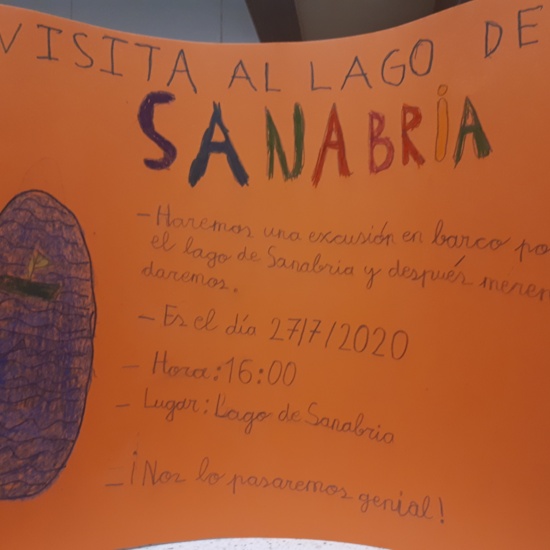 VISITA AL LAGO DE
SANABRIA
- Haremos una excusión en barco po
el lago de Sanabria y después meren
daremos.
- Es el día 27/7/2020
- Hora: 16:00
- Lugar: Lago de Sanabria
- ¡Nos lo pasaremos genial!